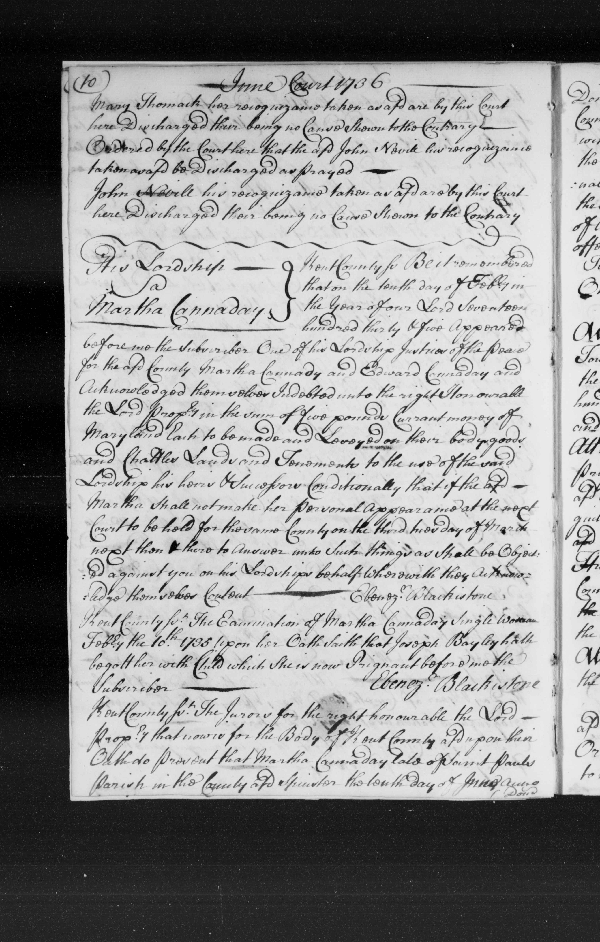 (10) June Court 1736
Mary Thomack her recognizance taken as afd are by this Court
here Discharged their being no Cause Shewn to the Contrary
Ordered by the Court here that the afd John Nevill his recognizance
taken as afd be Discharged as prayed
John Nevill his recognizance taken as afd are by this Court
here Discharged their being no Cause Shewn to the Contrary
His Lordship
Martha Cannaday
Kent County ss Be it remembered
that on the tenth day of Febry in
the Year of our Lord Seventeen
hundred thirty & five Appeared
before me the Subscriber One of his Lordship Justices of the peace
for the afd County Martha Cannady and Edward Cannaday and
Acknowledged themselves Indebted unto the right Honourable
the Lord Propry in the sum of five pounds Currant money of
Maryland Each to be made and Leveyed on their body goods
and Chattles Lands and Tenements to the use of the said
Lordship his heirs & Successors Conditionally that if the afd
Martha Shall not make her Personal Appearance at the next
Court to be held for the same County on the third tuesday of March
next then & there to Answer unto Such things as Shall be Object:
:ed against you on his Lordships behalf Wherewith they Acknow:
:ledge themselves Content Ebenezr Blackistone
Kent County ss. The Examination of Martha Cannaday Single Woman
Febry the 10th 1735 upon her Oath Saith that Joseph Bayley hath
begott her with Child which She is now Prignant before me the
Subscriber Ebenezr Blackistone
Kent County ss. The Jurors for the right honourable the Lord
Propry that now is for the Body of Kent County afd upon their
Oath do Present that Martha Cannaday late of Saint Pauls
Parish in the County afd Spinster the tenth day of June Anno
Dom